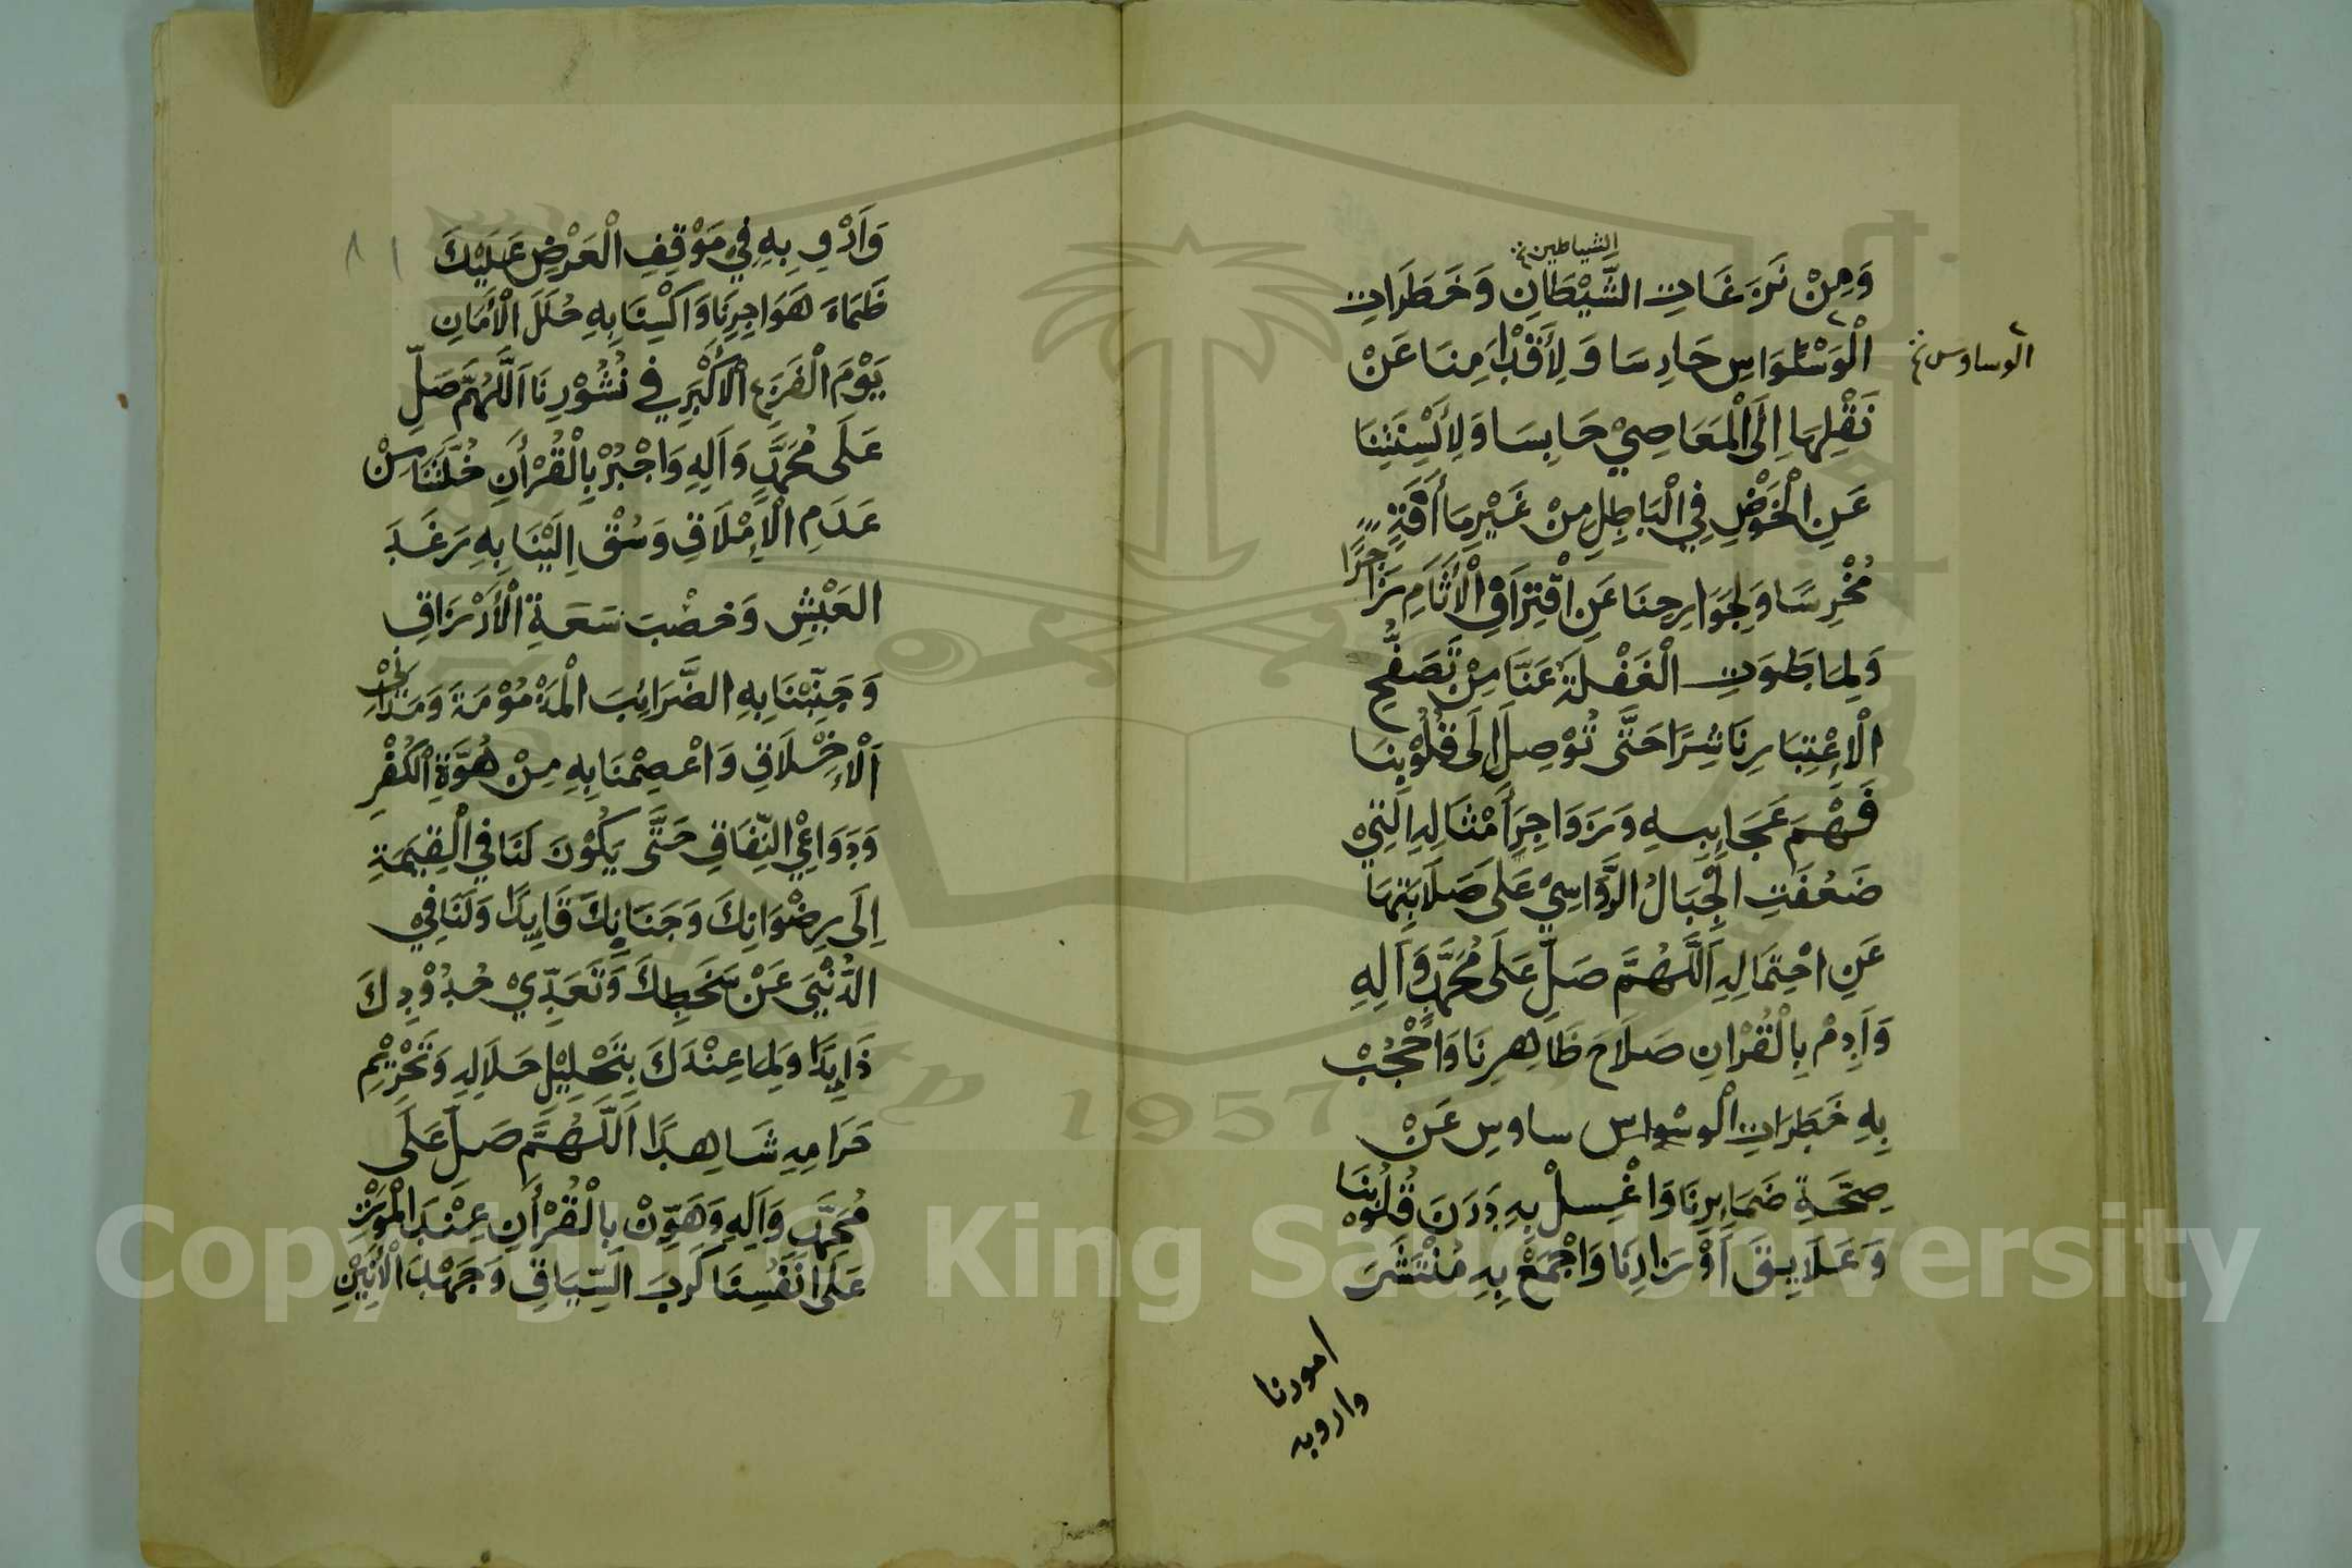 الشياطين
وَمِنْ نَزَغَاتِ الشَّيْطَانِ وَخَطَرَاتِ
الْوَسْوَاسِ حَارِسَا وَلِأَقْدَامِنَا عَنْ
الوساوس
نَقْلِهَا اِلَى الْمَعَاصِيْ حَابِسَا وَلِأَلْسِنَتِنَا
عَنِ الْخَوْضِ فِي الْبَاطِلِ مِنْ غَيْرِ مَا أَفَةٍ
مُخْرِسَا وَلِجَوَارِحِنَا عَنِ اقْتِرَافِ الْأَثَامِ زَاجِرًا
وَلِمَا طَوَتِ الْغَفْلَةُ عَنَّا مِنْ تَصَفُّحِ
الْاِعْتِبَارِ نَاشِرَا حَتَّى تُوْصِلَ اِلَى قُلُوْبِنَا
فَهْمَ عَجَايِبِهِ وَزَوَاجِرَ أَمْثَالِهِ الَّتِيْ
ضَعُفَتِ الْجِبَالُ الرَّوَاسِيْ عَلَى صَلَابَتِهَا
عَنِ احْتِمَالِهِ اَللَّهُمَّ صَلِّ عَلَى مُحَمَّدٍ وَآلِهِ
وَاَدِمْ بِالْقُرْانِ صَلَاحَ ظَاهِرِنَا وَاحْجُبْ
بِهِ خَطَرَاتِ الْوسْواس ساوِس عَنْ
صِحَّةِ ضَمَايِرِنَا وَاغْسِلْ بِهِ دَرَنَ قُلُوْبِنَا
وَعَلَايِقَ اَوْزَارِنَا وَاجْمَعْ بِهِ مُنْتَشَرَ
امورنا
واروبه
وَاَرْوِ بِهِ فِيْ مَوْقِفِ الْعَرْضِ عَلَيْكَ
ظَمَاءَ هَوَاجِرِنَا وَاكْسِنَا بِهِ حُلَلَ الْأَمَانِ
يَوْمَ الْفَزَعِ الْأَكْبَرِ فِي نُشُوْرِنَا اَللَّهُمَّ صَلِّ
عَلَى مُحَمَّدٍ وَآلِهِ وَاجْبُرْ بِالْقُرْأنِ خُلَّتَنَا مِنْ
عَدَمِ الْاِمْلَاقِ وَسُقْ اِلَيْنَا بِهِ رَغَدَ
العَيْشِ وَخصْبَ سَعَةِ الْأَرْزَاقِ
وَجَنِّبْنَا بِهِ الضَّرَائِبَ الْمَذْمُوْمَةَ وَمَدَانِيْ
اَلْاَخْلَاقِ وَاعْصِمْنَا بِهِ مِنْ هُوَّةِ الْكُفْرِ
وَدَوَاعِي النِّفَاقِ حَتَّى يَكُوْنَ لَنَا فِي الْقِيمَةِ
اِلَى رِضْوَانِكَ وَجَنَانِكَ قَايِدًا وَلَنَا فِيْ
الدُّنْيَى عَنْ سَخَطِكَ وَتَعَدِّيْ حُدُوْدِكَ
ذَايِدًا وَلِمَا عِنْدَكَ بِتَحْلِيْلِ حَلَالِهِ وَتَحْرِيْمِ
حَرَامِهِ شَاهِدًا اَللَّهُمَّ صَلِّ عَلَى
مُحَمَّدٍ وَآلِهِ وَهَوِّنْ بِالْقُرْأنِ عِنْدَ الْمَوْتِ
عَلَى اَنْفُسِنَا كَرْبَ السِّيَاقِ وَجَهْدَ الْأَنِيْنِ
Copyright © King Saud University
1957